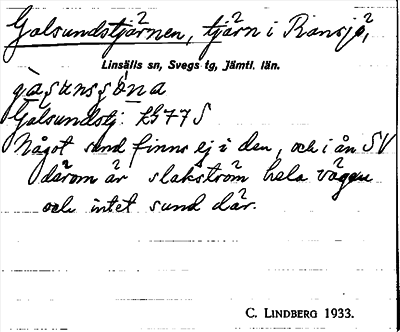 Galsundstjärnen, tjärn i Ransjö,
Linsälls sn, Svegs tg, Jämtl. län.
Galsundstj: LS 77 S
Något sund finns ej i den, och i ån SV
därom är slakström hela vägen
och intet sund där.
C. LINDBERG 1933.